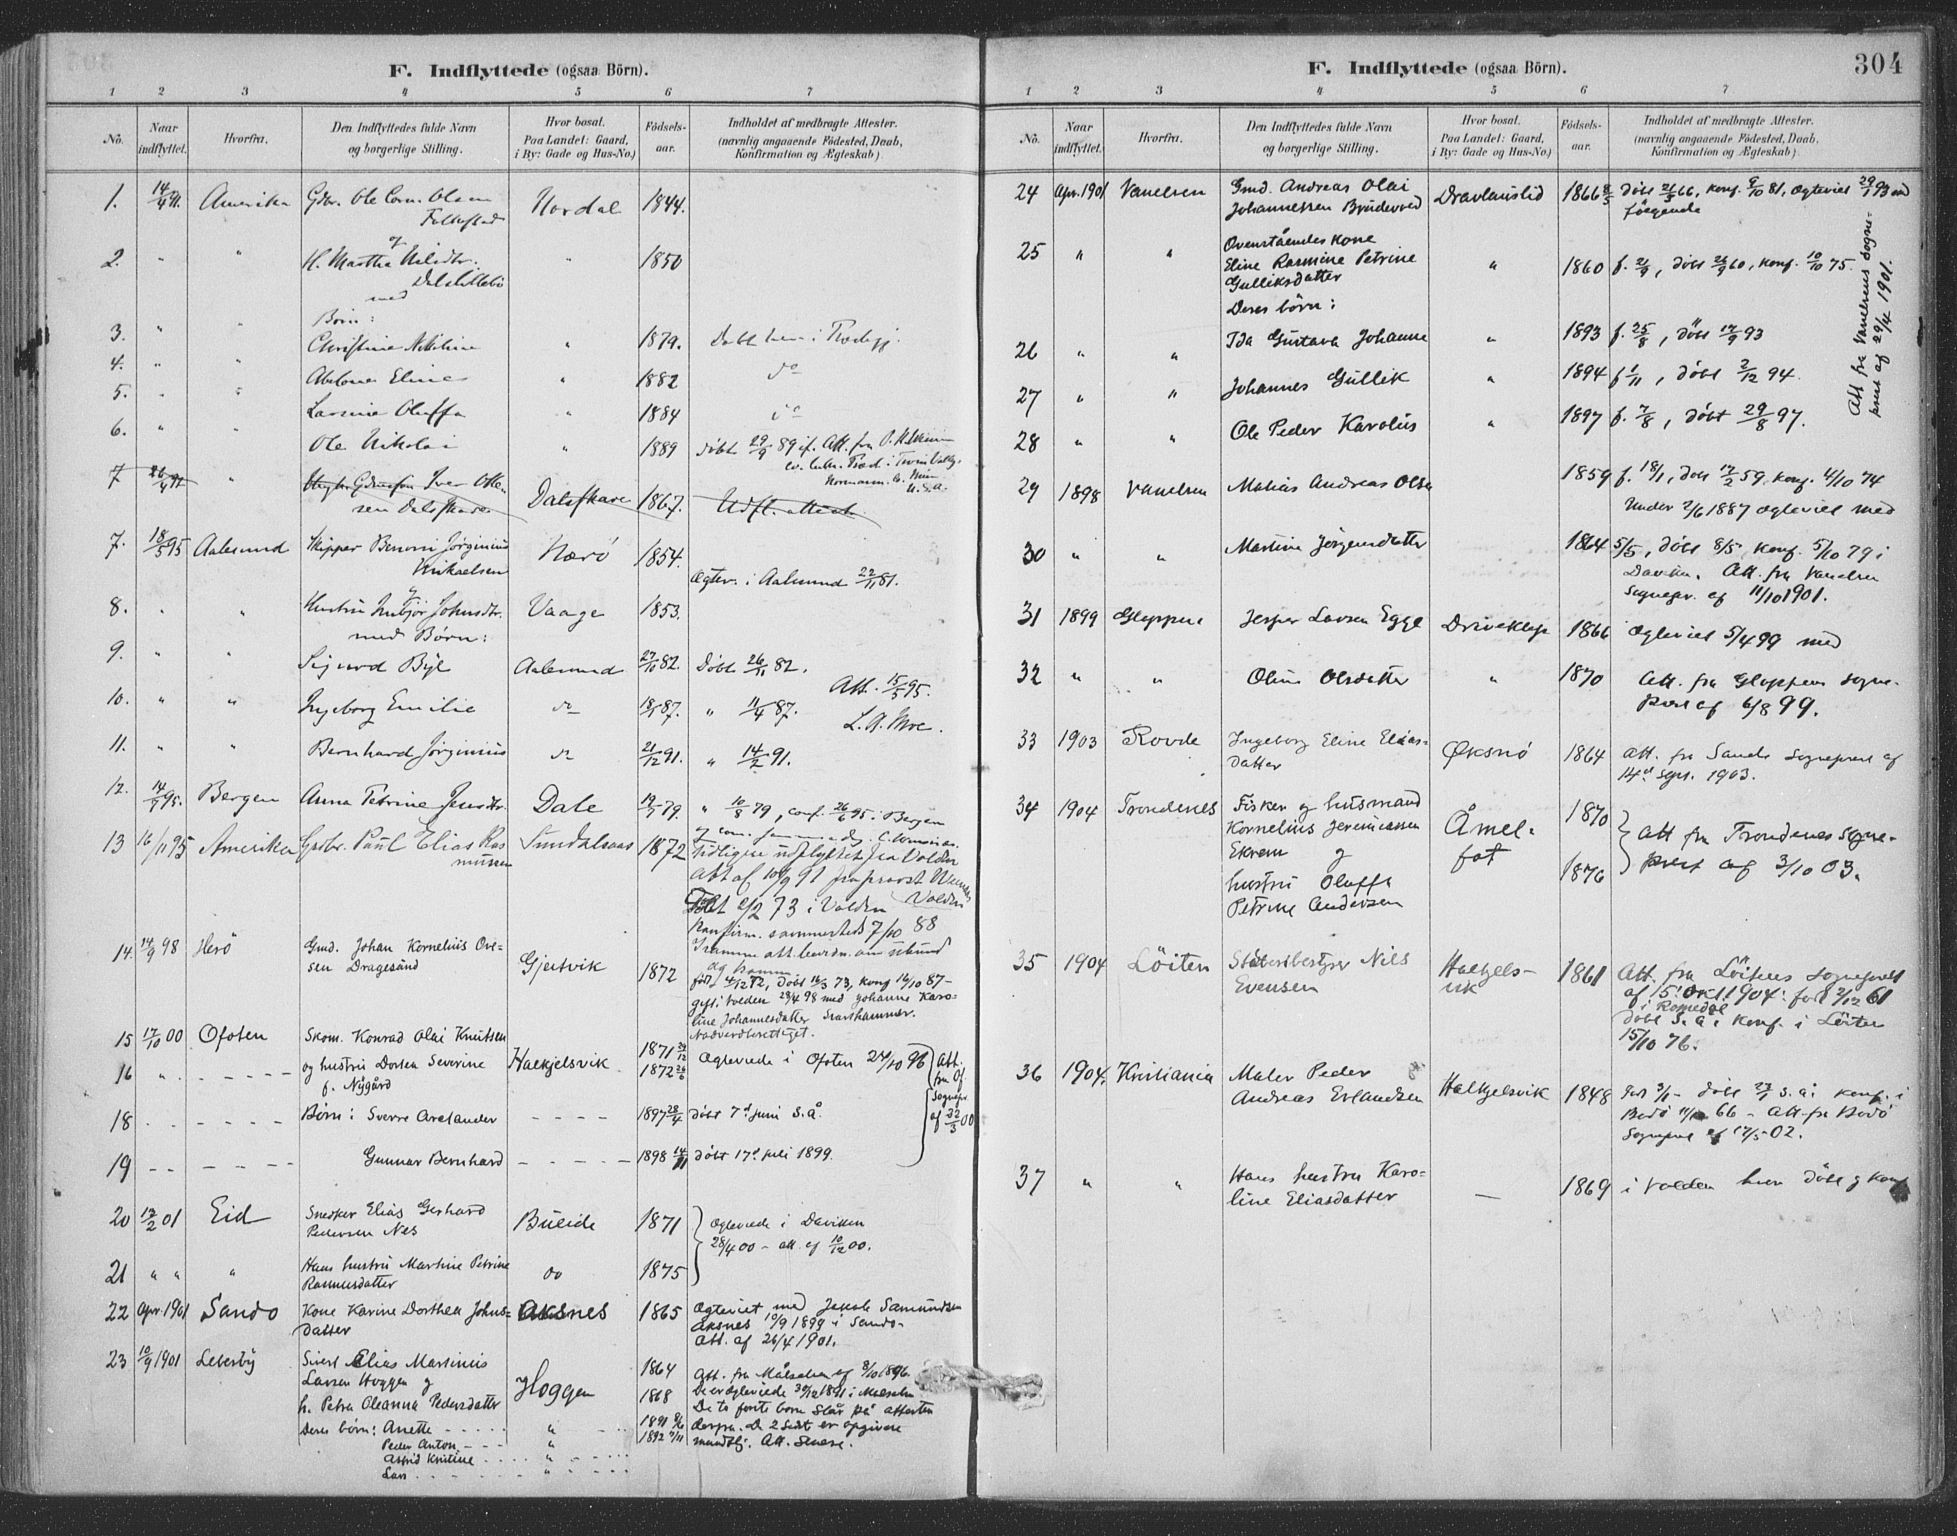 F. Indflyttede (ogsaa Börn).
1 2 3 4 5 6 7
No. Naar indflyttet. Hvorfra. Den Indflyttedes fulde Navn og borgerlige Stilling. Hvor bosat. Paa Landet: Gaard, i By: Gade og Hus-No.) Födsels-aar. Indholdet af medbragte Attester. (navnlig angaaende Födested, Daab, Konfirmation og Ægteskab)
1. 14/4 91. Amerika Gdbr. Ole Corn. Olsen Nordal 1844.
Folkestad
2. " " H. Martha Nilsdtr. " 1850
med
Börn:
3. " " Christine Nikoline " 1879. Døbt her i
4. " " Abelone Eline " 1882 do
5. " " Lavine Oluffa " 1884 do
6. " " Ole Nikolai " 1889 døbt 29/9 89 if. Att. fra
7 26/4 91 " Iver Otte-
sen Dalsfkare Dalsfkare 1867. Udfl. attest
7. 18/5 95 Aalesund Skipper Benoni Jørginius Nærö 1854.
Mikaelsen Ægtev. i Aalesund 22/11 81.
8. " " Hustru Inbjør Johnsdtr. Vaage 1853.
med Börn:
9. " " Sigurd Byl Aalesund 27/10 82. Døbt 26/11 82.
Att. 15/5 95.
10. " " Ingeborg Emilie do 18/1 87. " 11/4 87.
11. " " Bernhard Jørginius do 21/12 91. " 14/2 91.
12. 14/9 95. Bergen Anna Petrine Jensdtr. Dale 19/7 79. " 10/8 79, conf. 26/6 95. Bergen
13 16/11 95 Amerika Gdbr. Paul Elias Ras Sundalsaas 1872 tidligere udflyttet fra Volden
mussen att af 10/9 91 fra provst
Døbt 2/2 73 i Volden
Konfirm. sammesteds 7/10 88
14. 14/9 98 Herö Gmd. Johan Kornelius Ove-
sen Dragesund Gjertvik 1872 født 4/12 72, døbt 16/3 73, konf 14/10 87-
gift i Volden 28/4 98 med Johanne Karo-
line Johannesdatter Svarthammer.
Nadverdberettiget.
15 17/10 00 Ofoten Skom. Konrad Olai Knutsen 1871 29/12
16 " og hustru Dorten Severine Haekjelsvik 1872 26/6 Ægteviede i Ofoten 24/10 96
f. Nygård
Att. fra Of sognepr af 22/3 00
18 Børn: Sverre Avelander 1897 28/4 døbt 7d juni S.å.
19 Gunnar Bernhard 1898 14/11 døbt 17d juli 1899.
20 12/2 01 Eid Snedker Elias Gerhard Bueide 1871 Ægteviede i Daviken
Pedersen Nes 28/4 00 - att. af 10/12 00.
21 " " " Hans hustru Martine Petrine do 1875
Rasmusdatter
22 Apr. 1901 Sando Kone Karine Dorthea Johns- Aksnes 1865 Ægteviet med Jakob Samundsen
datter Aksnes 10/9 1899 i Sando-
Att. af 26/4 1901.
23 10/9 1901 Lebesby Sivert Elias Martinus 1864 Att. fra Målselven af 8/10 1896.
Larsen Hoggen og Hoggen De er ægteviede 30/12 1891 i Målselv
h. Petra Oleanna Pedersdatter 1868 De to første børn står på attesten
Deres børn: Anette " 1891 derfra. De 2 sidst er opgivne
Peder Anton " 1892 7/11 mundtlig. Att. senere.
Astrid Kristine "
Lars "
F. Indflyttede (ogsaa Börn). 304
1 2 3 4 5 6 7
No. Naar indflyttet. Hvorfra. Den Indflyttedes fulde Navn og borgerlige Stilling. Hvor bosat. Paa Landet: Gaard, i By: Gade og Hus-No.) Födsels-aar. Indholdet af medbragte Attester. (navnlig angaaende Födested, Daab, Konfirmation og Ægteskab)
24 Apr. 1901 Vanelven Gmd. Andreas Olai Dravlauslid 1866 8/5 døbt 21/5 66, konf. 9/10 81, Ægteviet 29/1 93 md
Johannessen Brudevold følgende
25 " " Ovenståendes kone " 1860 f. 21/9, døbt 26/9 60, konf. 10/10 75.
Eline Rasmine Petrine
Gulliksdatter
Deres børn:
26 " " Ida Gustava Johanne " 1893 f. 25/8, døbt 17/9 93
27 " " Johannes Gullik " 1894 f 1/11, døbt 2/12 94.
28 " " Ole Peder Karolus " 1897 f. 7/8, døbt 29/8 97.
Att fra Vanelvens Sogne-
prest af 29/4 1901.
29 1898 Vanelven Matias Andreas Olse 1859 f. 18/1, døbt 17/2 59, konf. 4/10 74
Under 2/6 1887 Ægteviet med
30 " " Martine Jørgensdatter 1864 5/5, døbt 8/5, konf. 5/10 79 i
Daviken. Att. fra Vanelven
Sognepr. af 11/10 1901.
31 1899 Gloppen Jesper Larsen Egge Driveklep 1866 Ægteviet 5/4 99 med
32 " " Oline Olsdatter " 1870 Att. fra Gloppens Sogne-
prest af 6/8 99.
33 1903 Rovde Ingeborg Eline Elias- Øksnö 1864 Att. fra Sande Sogneprest af
datter 14d Sept. 1903.
34 1904 Trondenes Fisker og husmand Åmel- 1870 Att fra Trondenes Sogne-
Kornelius Jeremiassen fot prest af 3/10 03.
Ekrem og
hustru Oluffa 1876
Petrine Andersen
35 1904 Löiten Nils Haekjels- 1861 Att. fra Löitens Sogneprest
Evensen vik af 15' Okt 1904: født 2/12 61
i Romedal
døbt S. å. Konf. i Löiten
15/10 76.
36 1904. Kristiania Maler Peder Haekjelsvik 1848 født 3/1 - døbt 27/1 S. å. Konf. i
Andreas Erlandsen Bodö 66 - Att. fra Bodö
Sogneprest af 17/5-02.
37 " " Hans hustru Karo- — 1869 i Volden her døbt og konf
line Eliasdatter